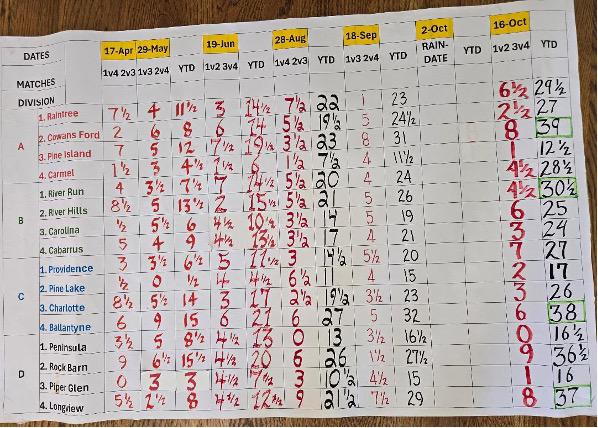 DATES 17-Apr 29-May 19-Jun 28-Aug 18-Sep 2-Oct 16-Oct
MATCHES 1v4 2v3 1v3 2v4 YTD 1v2 3v4 YTD 1v4 2v3 YTD 1v3 2v4 YTD RAIN-DATE YTD 1v2 3v4 YTD
DIVISION
A
1. Raintree 7½ 4 11½ 3 14½ 7½ 22 1 23 6½ 29½
2. Cowans Ford 2 6 8 6 14 5½ 19½ 5 24½ 2½ 27
3. Pine Island 7 5 12 7½ 19½ 3½ 23 8 31 8 39
4. Carmel 1½ 3 4½ 1½ 6 1½ 7½ 4 11½ 1 12½
B
1. River Run 4 3½ 7½ 7 14½ 5½ 20 4 24 4½ 28½
2. River Hills 8½ 5 13½ 2 15½ 5½ 21 5 26 4½ 30½
3. Carolina ½ 5½ 6 4½ 10½ 3½ 14 5 19 6 25
4. Cabarrus 5 4 9 4½ 13½ 3½ 17 4 21 3 24
C
1. Providence 3 3½ 6½ 5 11½ 3 14½ 5½ 20 7 27
2. Pine Lake ½ 0 ½ 4 4½ 6½ 11 4 15 2 17
3. Charlotte 8½ 5½ 14 3 17 2½ 19½ 3½ 23 3 26
4. Ballantyne 6 9 15 6 21 6 27 5 32 6 38
D
1. Peninsula 3½ 5 8½ 4½ 13 0 13 3½ 16½ 0 16½
2. Rock Barn 9 6½ 15½ 4½ 20 6 26 1½ 27½ 9 36½
3. Piper Glen 0 3 3 4½ 7½ 3 10½ 4½ 15 1 16
4. Longview 5½ 2½ 8 4½ 12½ 9 21½ 7½ 29 8 37